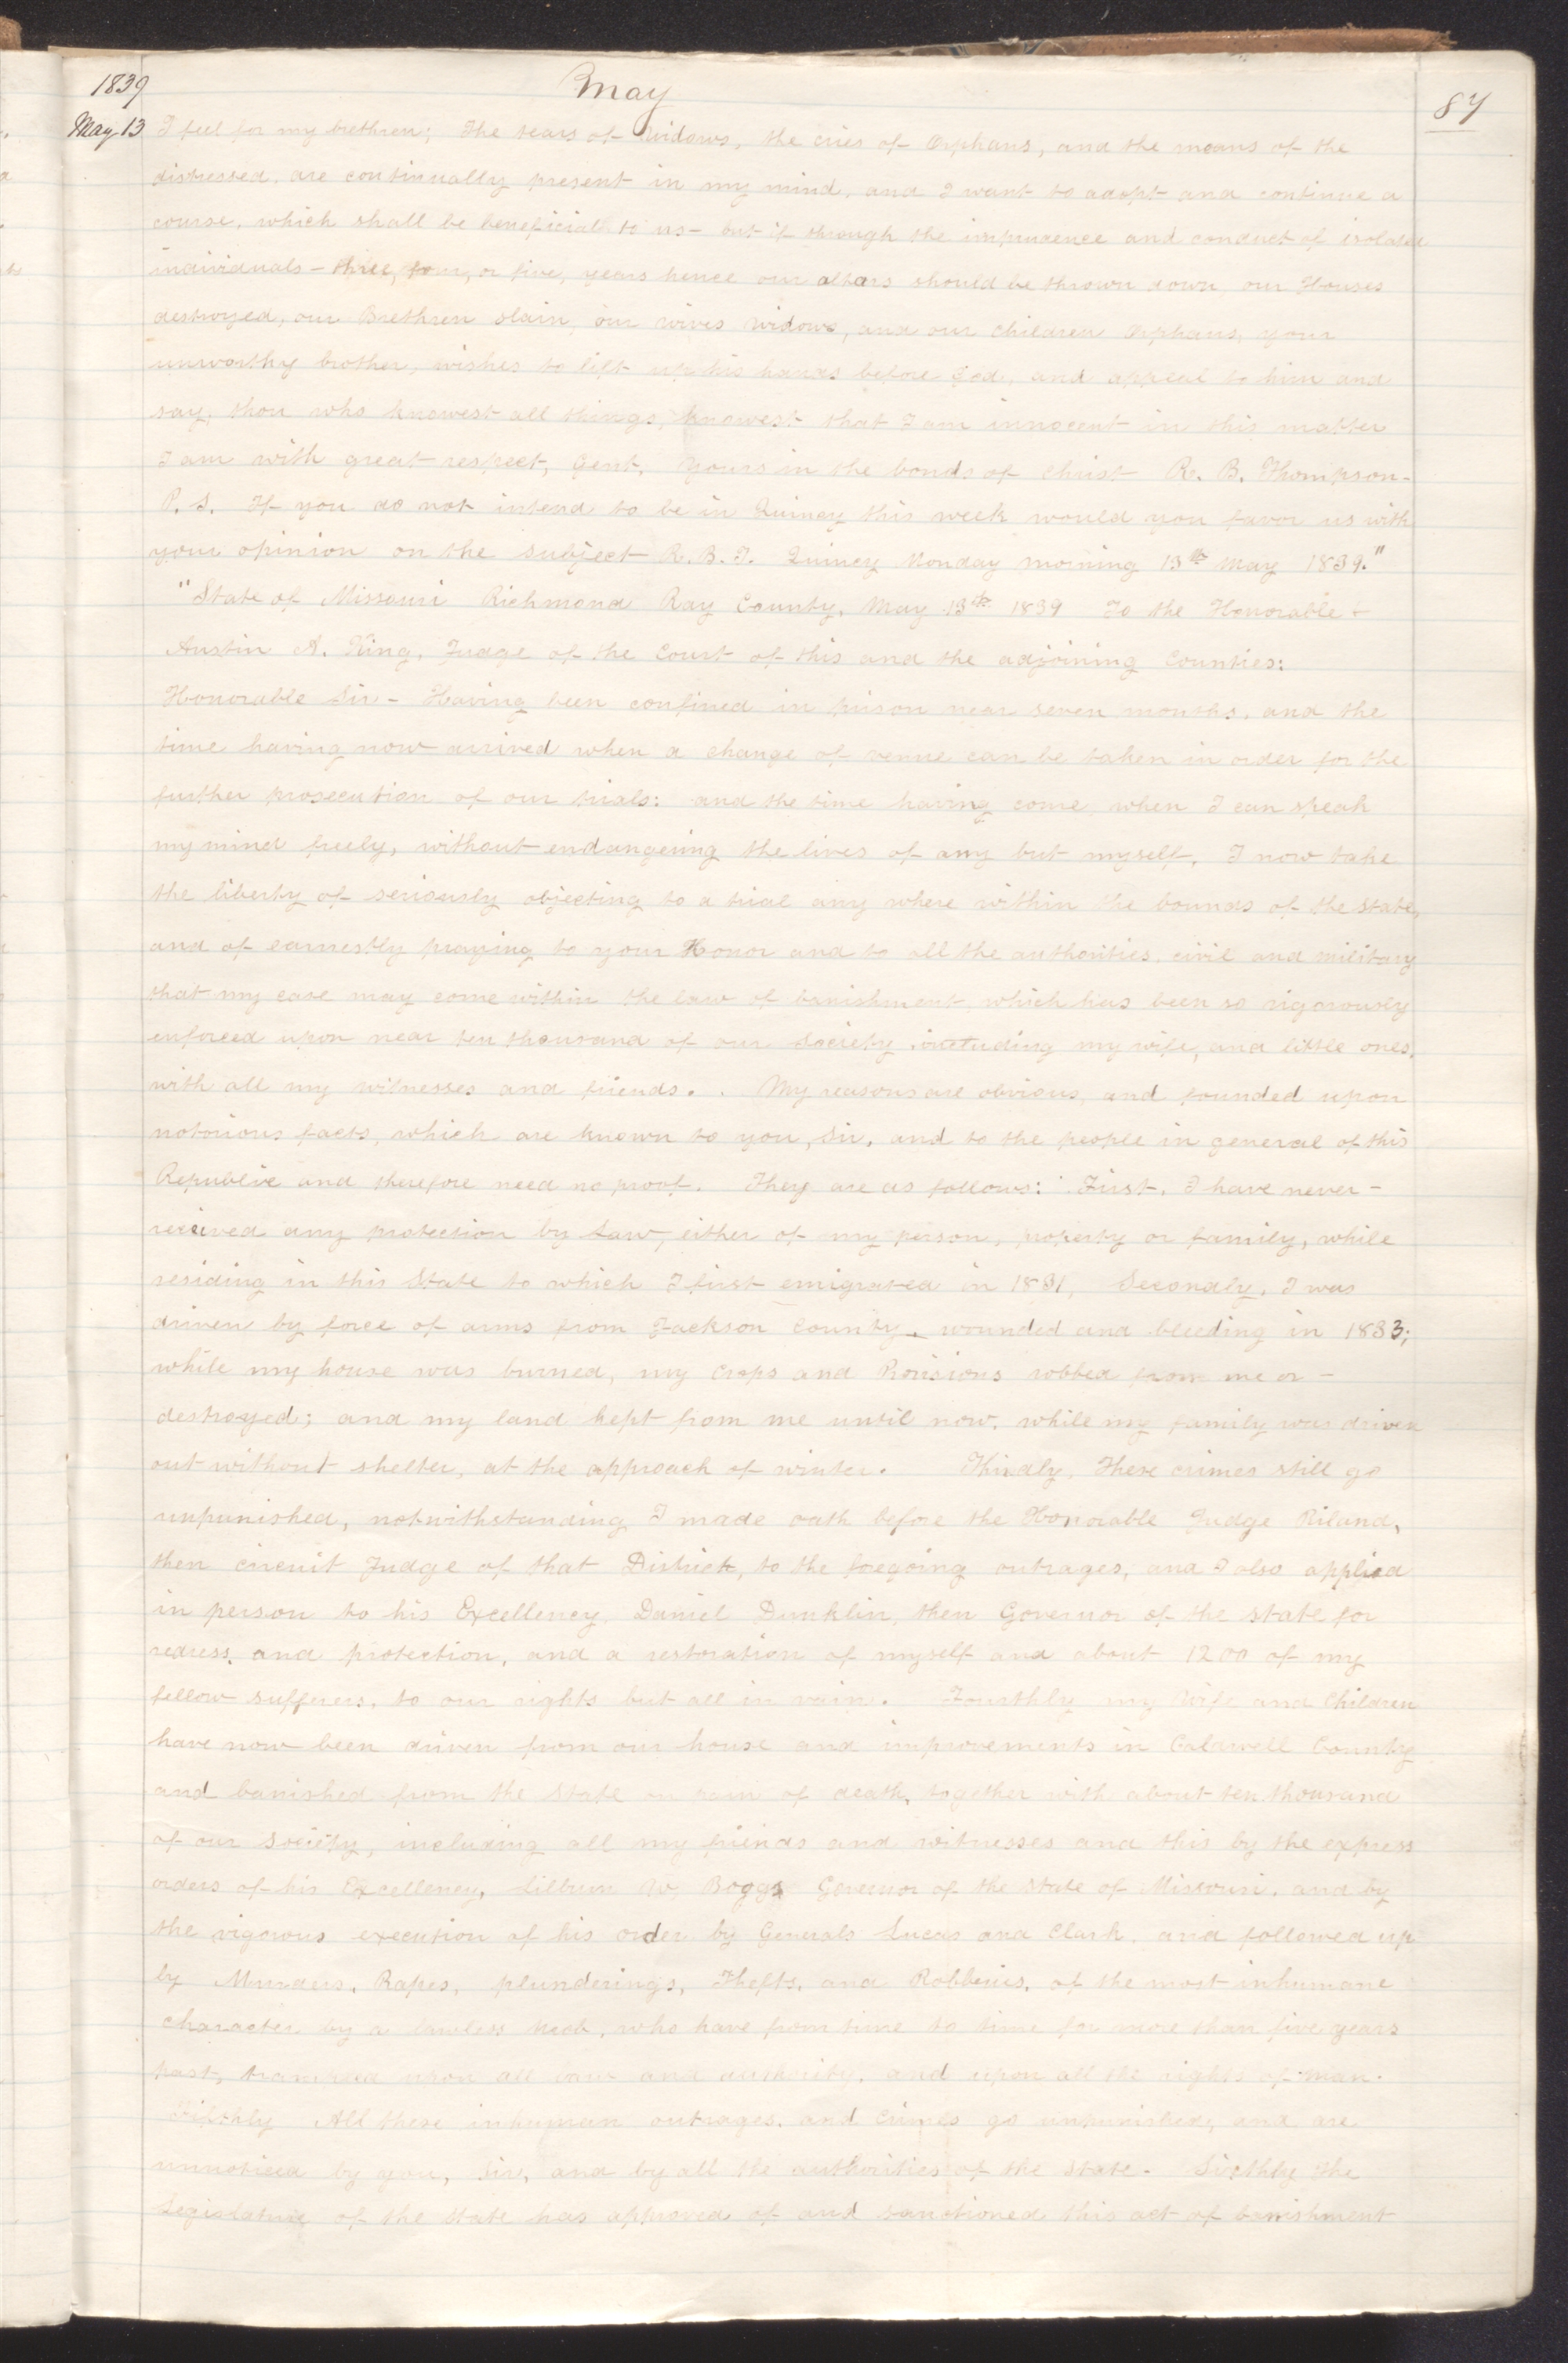 1839
May
87
May 13 I feel for my brethren; The tears of Widows, the cries of Orphans, and the moans of the
distressed, are continually present in my mind, and I want to adopt and continue a
course, which shall be beneficial to us– but if through the imprudence and conduct of isolated
individuals– three, four, or five, years hence our altars should be thrown down, our Houses
destroyed, our Brethren slain, our wives widows, and our children Orphans, your
unworthy brother, wishes to lift up his hands before God, and appeal to him and
say, thou who knowest all things, knowest that I am innocent in this matter
I am with great respect, Gent. Yours in the bonds of Christ R. B. Thompson–
P. S. If you do not intend to be in Quincy this week would you favor us with
your opinion on the subject R. B. T. Quincy Monday morning 13th May 1839."
"State of Missouri Richmond Ray County, May 13th 1839 To the Honorable
Austin A. King, Judge of the Court of this and the adjoining Counties:
Honorable Sir– Having been confined in prison near seven months, and the
time having now arrived when a change of venue can be taken in order for the
further prosecution of our trials: and the time having come when I can speak
my mind freely, without endangering the lives of any but myself, I now take
the liberty of seriously objecting to a trial any where within the bounds of the State,
and of earnestly praying to your Honor and to all the authorities, civil and military
that my case may come within the law of banishment, which has been so rigorously
enforced upon near ten thousand of our society, including my wife, and little ones,
with all my witnesses and friends. My reasons are obvious, and founded upon
notorious facts, which are known to you, Sir, and to the people in general of this
Republic and therefore need no proof. They are as follows: First, I have never–
received any protection by Law, either of my person, property or family, while
residing in this State to which I first emigrated in 1831, Secondly, I was
driven by force of arms from Jackson County, wounded and bleeding in 1833;
while my house was burned, my Crops and Provisions robbed from me or–
destroyed; and my land kept from me until now, while my family was driven
out without shelter, at the approach of winter. Thirdly, These crimes still go
unpunished, notwithstanding I made oath before the Honorable Judge Riland,
then circuit Judge of that District, to the foregoing outrages, and I also applied
in person to his Excellency, Daniel Dunklin, then Governor of the state for
redress, and protection, and a restoration of myself and about 1200 of my
fellow sufferers, to our rights but all in vain. Fourthly my Wife and Children
have now been driven from our house and improvements in Caldwell County
and banished from the State on pain of death, together with about ten thousand
of our society, including all my friends and witnesses and this by the express
orders of his Excellency, Lilburn W. Boggs Governor of the State of Missouri, and by
the vigorous execution of his order by Generals Lucas and Clark, and followed up
by Murders, Rapes, plunderings, Thefts, and Robberies, of the most inhumane
character by a lawless Mob, who have from time to time for more than five years
past, trampled upon all law and authority, and upon all the rights of man.
Fifthly All these inhuman outrages, and Crimes go unpunished, and are
unnoticed by you, Sir, and by all the authorities of the State– Sixthly The
Legislature of the State has approved of and sanctioned this act of banishment